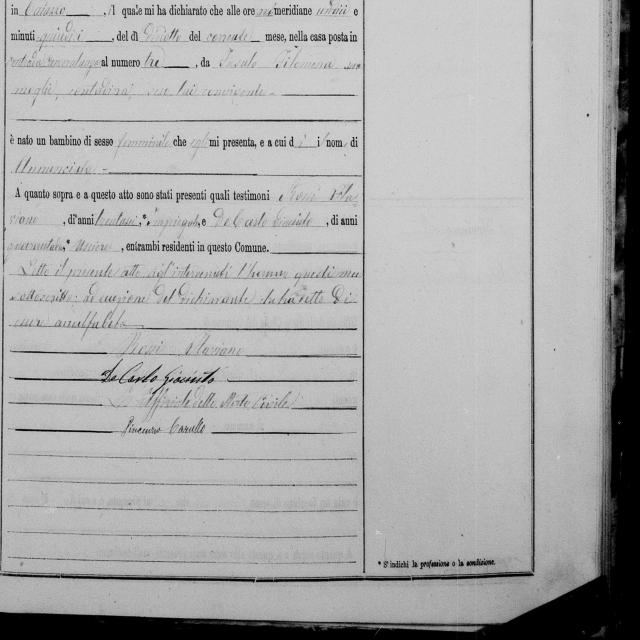 in Caiazzo, il quale mi ha dichiarato che alle ore meridiane undici e
minuti quindici, del dì diciotto del corrente mese, nella casa posta in
al numero tre, da Fasulo Filomena sua
moglie, contadina, seco lui convivente
è nato un bambino di sesso femminile che egli mi presenta, e a cui dà i nome di
Annunciata
A quanto sopra e a questo atto sono stati presenti quali testimoni Rossi Fla-
viano, d'anni trentuno, * impiegato, e De Carlo Giacinto, di anni
quarantatre, * usciere, entrambi residenti in questo Comune.
Letto il presente atto agl'intervenuti l'hanno questi meco
sottoscritto, ad eccezione del dichiarante che ha detto di
essere analfabeta
Rossi Flaviano
De Carlo Giacinto
L'Uffiziale dello Stato Civile
Vincenzo Carullo
* S'indichi la professione o la condizione.